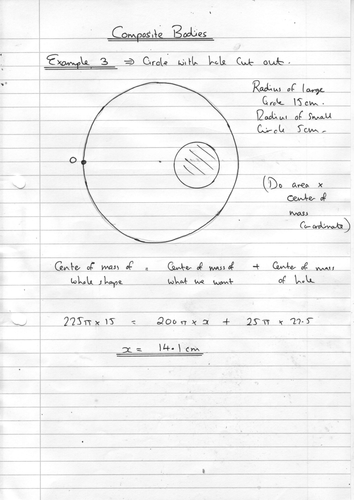 Composite Bodies
Example 3 ⇒ Circle with hole cut out.
Radius of large
Circle 15cm.
Radius of small
Circle 5cm.
O
(Do area x
center of
mass
(co-ordinate)
Center of mass of = Center of mass of + Center of mass
whole shape what we want of hole
225π x 15 = 200π x x + 25π x 22.5
x = 14.1 cm